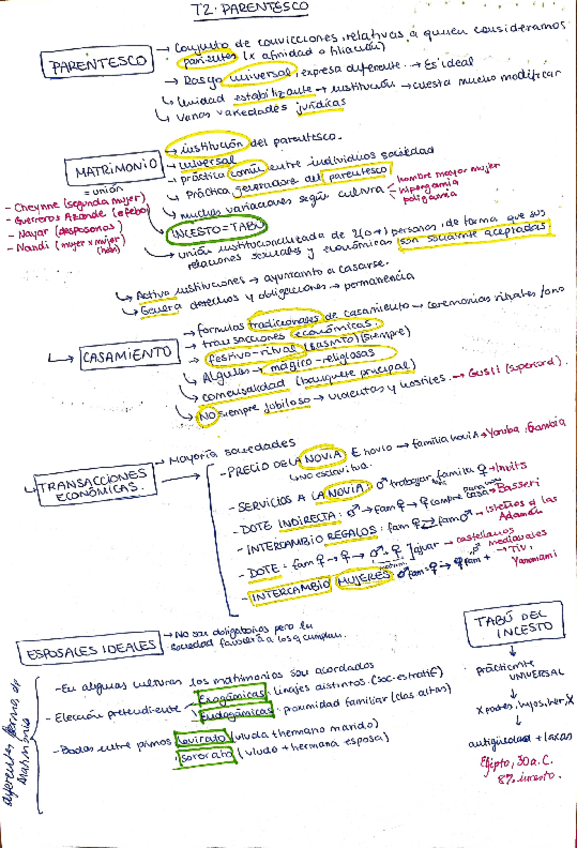 T2. PARENTESCO
PARENTESCO
→ Conjunto de convicciones relativas a quien consideramos
parientes (x afinidad o filiación)
→ Rasgo universal, expresa diferente → Es ideal
↳ Unidad estabilizante → institución → cuesta mucho modificar
↳ Varias variedades jurídicas
MATRIMONIO
= unión
- Cheynne (segunda mujer)
- Guerreros Azande (efebo)
- Nayar (desposorios)
- Nandi (mujer x mujer)
→ institución del parentesco.
→ universal
→ práctica común entre individuos sociedad
→ Práctica generadora del parentesco
↳ muchas variaciones según cultura
hombre mayor mujer
hipergamia
poligamia
INCESTO = TABÚ
↳ unión institucionalizada de 2 (o +) personas, de forma que sus
relaciones sexuales y económicas son socialmente aceptadas.
↳ Activa instituciones → ayuntamiento a casarse.
↳ Genera derechos y obligaciones → permanencia
CASAMIENTO
→ fórmulas tradicionales de casamiento → ceremonias rituales / ono
→ transacciones económicas.
→ festivo-ritual (siempre)
↳ Algunas → mágico-religiosas
↳ comensalidad (banquete principal)
↳ NO siempre jubiloso → violentas y hostiles. → Gusii (supercord).
TRANSACCIONES
ECONÓMICAS.
→ Mayoría sociedades
- PRECIO DE LA NOVIA: € novio → familia novia → Yoruba, Gambia
↳ no esclavitud.
- SERVICIOS A LA NOVIA: ♂ trabajar familia ♀ → Inuits
- DOTE INDIRECTA: ♂ → fam ♀ → ♀ compre casa → Basseri
- INTERCAMBIO REGALOS: fam ♀ ⇄ fam ♂ → isleños d las
Adamán
- DOTE: fam ♀ → ♀ → ♂ + ♀ ] ajuar → castellanos
medievales
- INTERCAMBIO MUJERES ♂ fam ♀ → ♀ fam + → Tiv,
ESPOSALES IDEALES
→ No son obligatorias pero la
sociedad favorece a los q cumplan.
diferentes formas de
Matrimonio
- En algunas culturas los matrimonios son acordados
- Elección pretendiente
Exogámicas: linajes distintos (soc. estratif)
Endogámicas: proximidad familiar (clas altas)
- Bodas entre primos
levirato (viuda + hermano marido)
sororato (viudo + hermana esposa)
TABÚ DEL
INCESTO
prácticmte
UNIVERSAL
x padres, hijos, her. x
antigüedad +
Egipto, 30 a.C.
8% incesto.